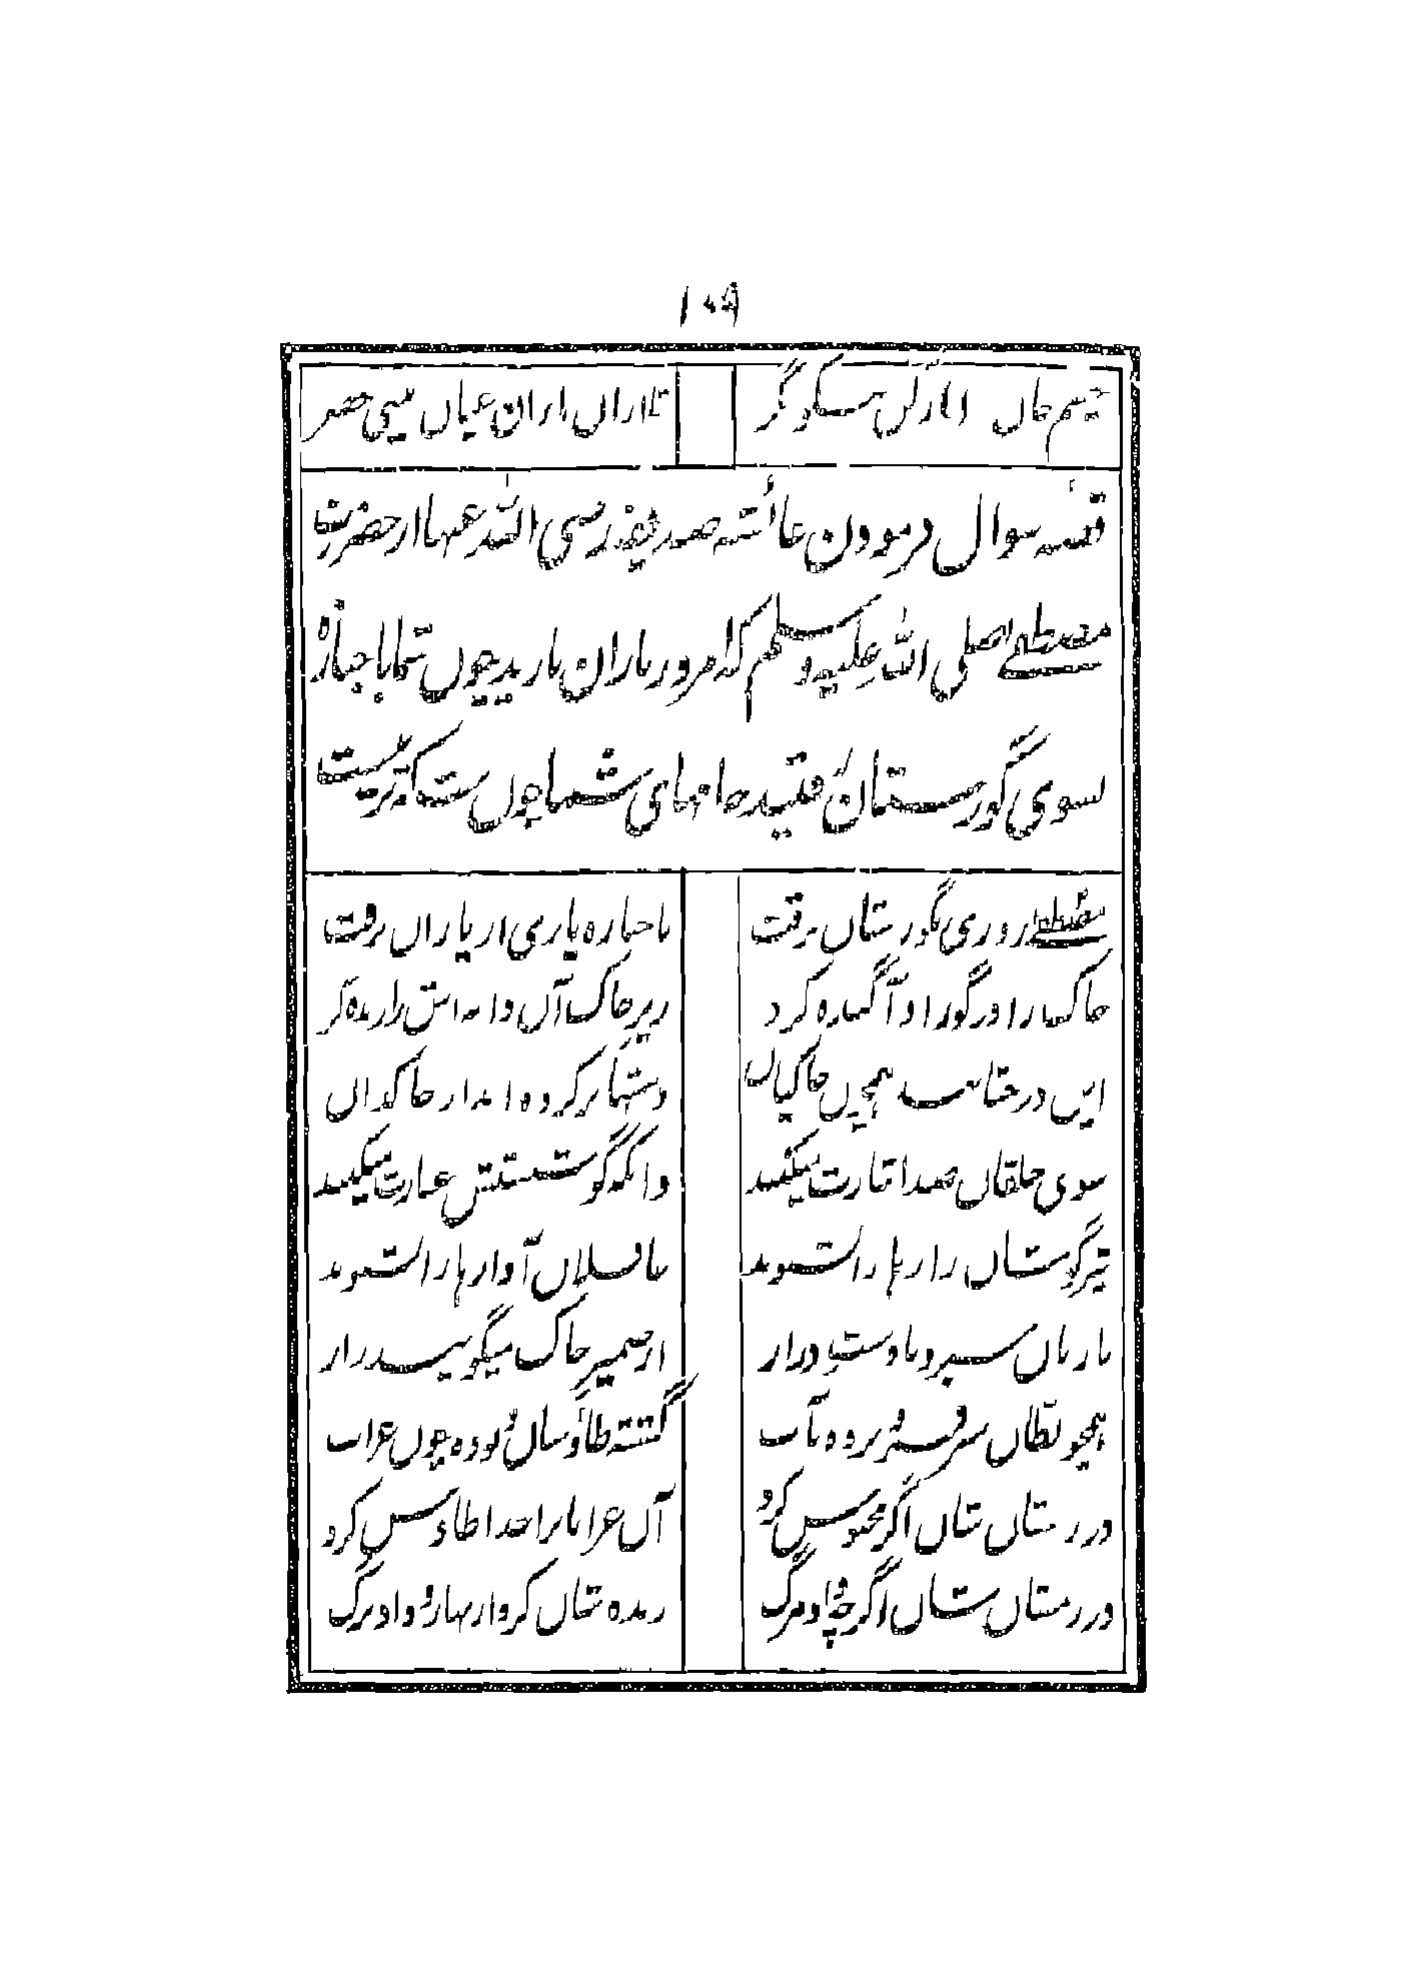 ۱۰۹
چشم جان را باز کن نیکو نگر تا ازان باران عیان بینی خضر
قصه سوال فرمودن عائشه صدیقه رضی الله عنها از حضرت
مصطفے صلی الله علیه وسلم که امروز باران بارید چون شما با جنازه
سوی گورستان رفتید جامهای شما چون ست که تر نیست
مصطفے روزی بگورستان برفت با جنازه یاری از یاران برفت
خاک را در گور او آگنده کرد زیر خاک آن دانه اش را زنده کرد
این درختانند همچون خاکیان دستها بر کرده اند از خاکدان
سوی خلقان صد اشارت میکنند وانکه گوشستش عبارت میکنند
تیز گوشان راز ها را بشنوند غافلان آواز ها را نشنوند
با زبان سبز و با دست دراز از ضمیر خاک میگویند راز
همچو بطان سر فرو برده بآب گشته طاؤسان و بوده چون غراب
در زمستان شان اگر محبوس کرد آن غرابان را خدا طاؤس کرد
در زمستان شان اگر چه داد مرگ زنده شان کرد از بهار و داد برگ